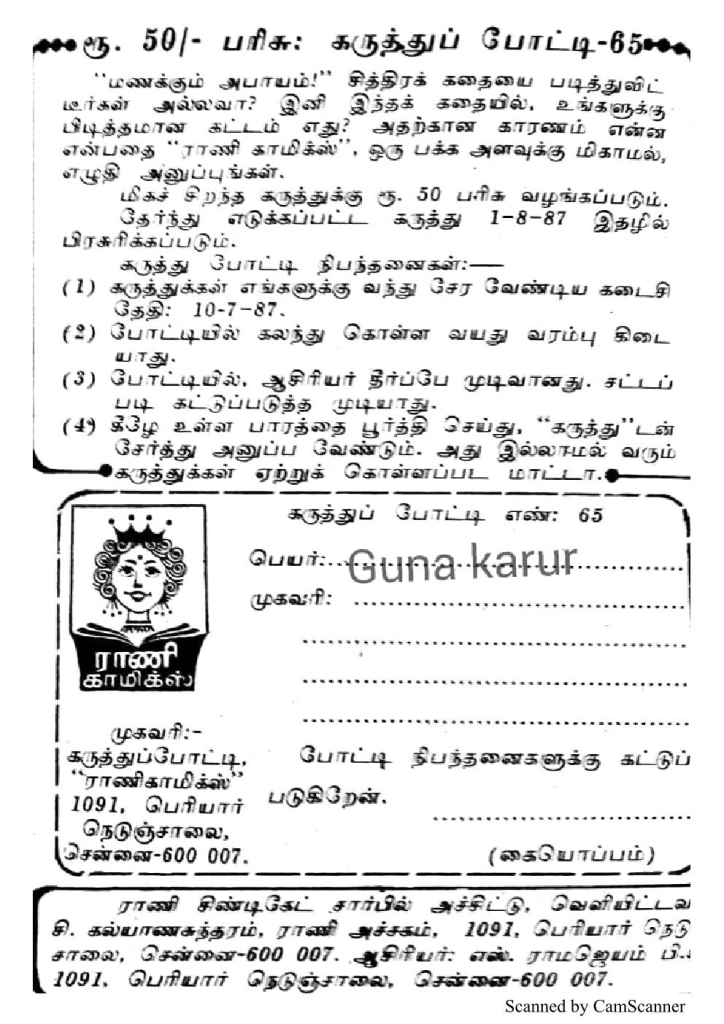 ரூ. 50/- பரிசு: கருத்துப் போட்டி-65
"மணக்கும் அபாயம்!" சித்திரக் கதையை படித்துவிட்
டீர்கள் அல்லவா? இனி இந்தக் கதையில், உங்களுக்கு
பிடித்தமான கட்டம் எது? அதற்கான காரணம் என்ன
என்பதை "ராணி காமிக்ஸ்", ஒரு பக்க அளவுக்கு மிகாமல்,
எழுதி அனுப்புங்கள்.
மிகச் சிறந்த கருத்துக்கு ரூ. 50 பரிசு வழங்கப்படும்.
தேர்ந்து எடுக்கப்பட்ட கருத்து 1-8-87 இதழில்
பிரசுரிக்கப்படும்.
கருத்து போட்டி நிபந்தனைகள்:—
(1) கருத்துக்கள் எங்களுக்கு வந்து சேர வேண்டிய கடைசி
தேதி: 10-7-87.
(2) போட்டியில் கலந்து கொள்ள வயது வரம்பு கிடை
யாது.
(3) போட்டியில், ஆசிரியர் தீர்ப்பே முடிவானது. சட்டப்
படி கட்டுப்படுத்த முடியாது.
(4) கீழே உள்ள பாரத்தை பூர்த்தி செய்து, "கருத்து"டன்
சேர்த்து அனுப்ப வேண்டும். அது இல்லாமல் வரும்
கருத்துக்கள் ஏற்றுக் கொள்ளப்பட மாட்டா.
கருத்துப் போட்டி எண்: 65
பெயர்:..... Guna karur
முகவரி: .....
ராணி
காமிக்ஸ்
முகவரி:-
கருத்துப்போட்டி,
"ராணிகாமிக்ஸ்"
1091, பெரியார்
நெடுஞ்சாலை,
சென்னை-600 007.
போட்டி நிபந்தனைகளுக்கு கட்டுப்
படுகிறேன்.
(கையொப்பம்)
ராணி சிண்டிகேட் சார்பில் அச்சிட்டு, வெளியிட்டவ
சி. கல்யாணசுந்தரம், ராணி அச்சகம், 1091, பெரியார் நெடு
சாலை, சென்னை-600 007. ஆசிரியர்: எஸ். ராமஜெயம் பி..
1091, பெரியார் நெடுஞ்சாலை, சென்னை-600 007.
Scanned by CamScanner